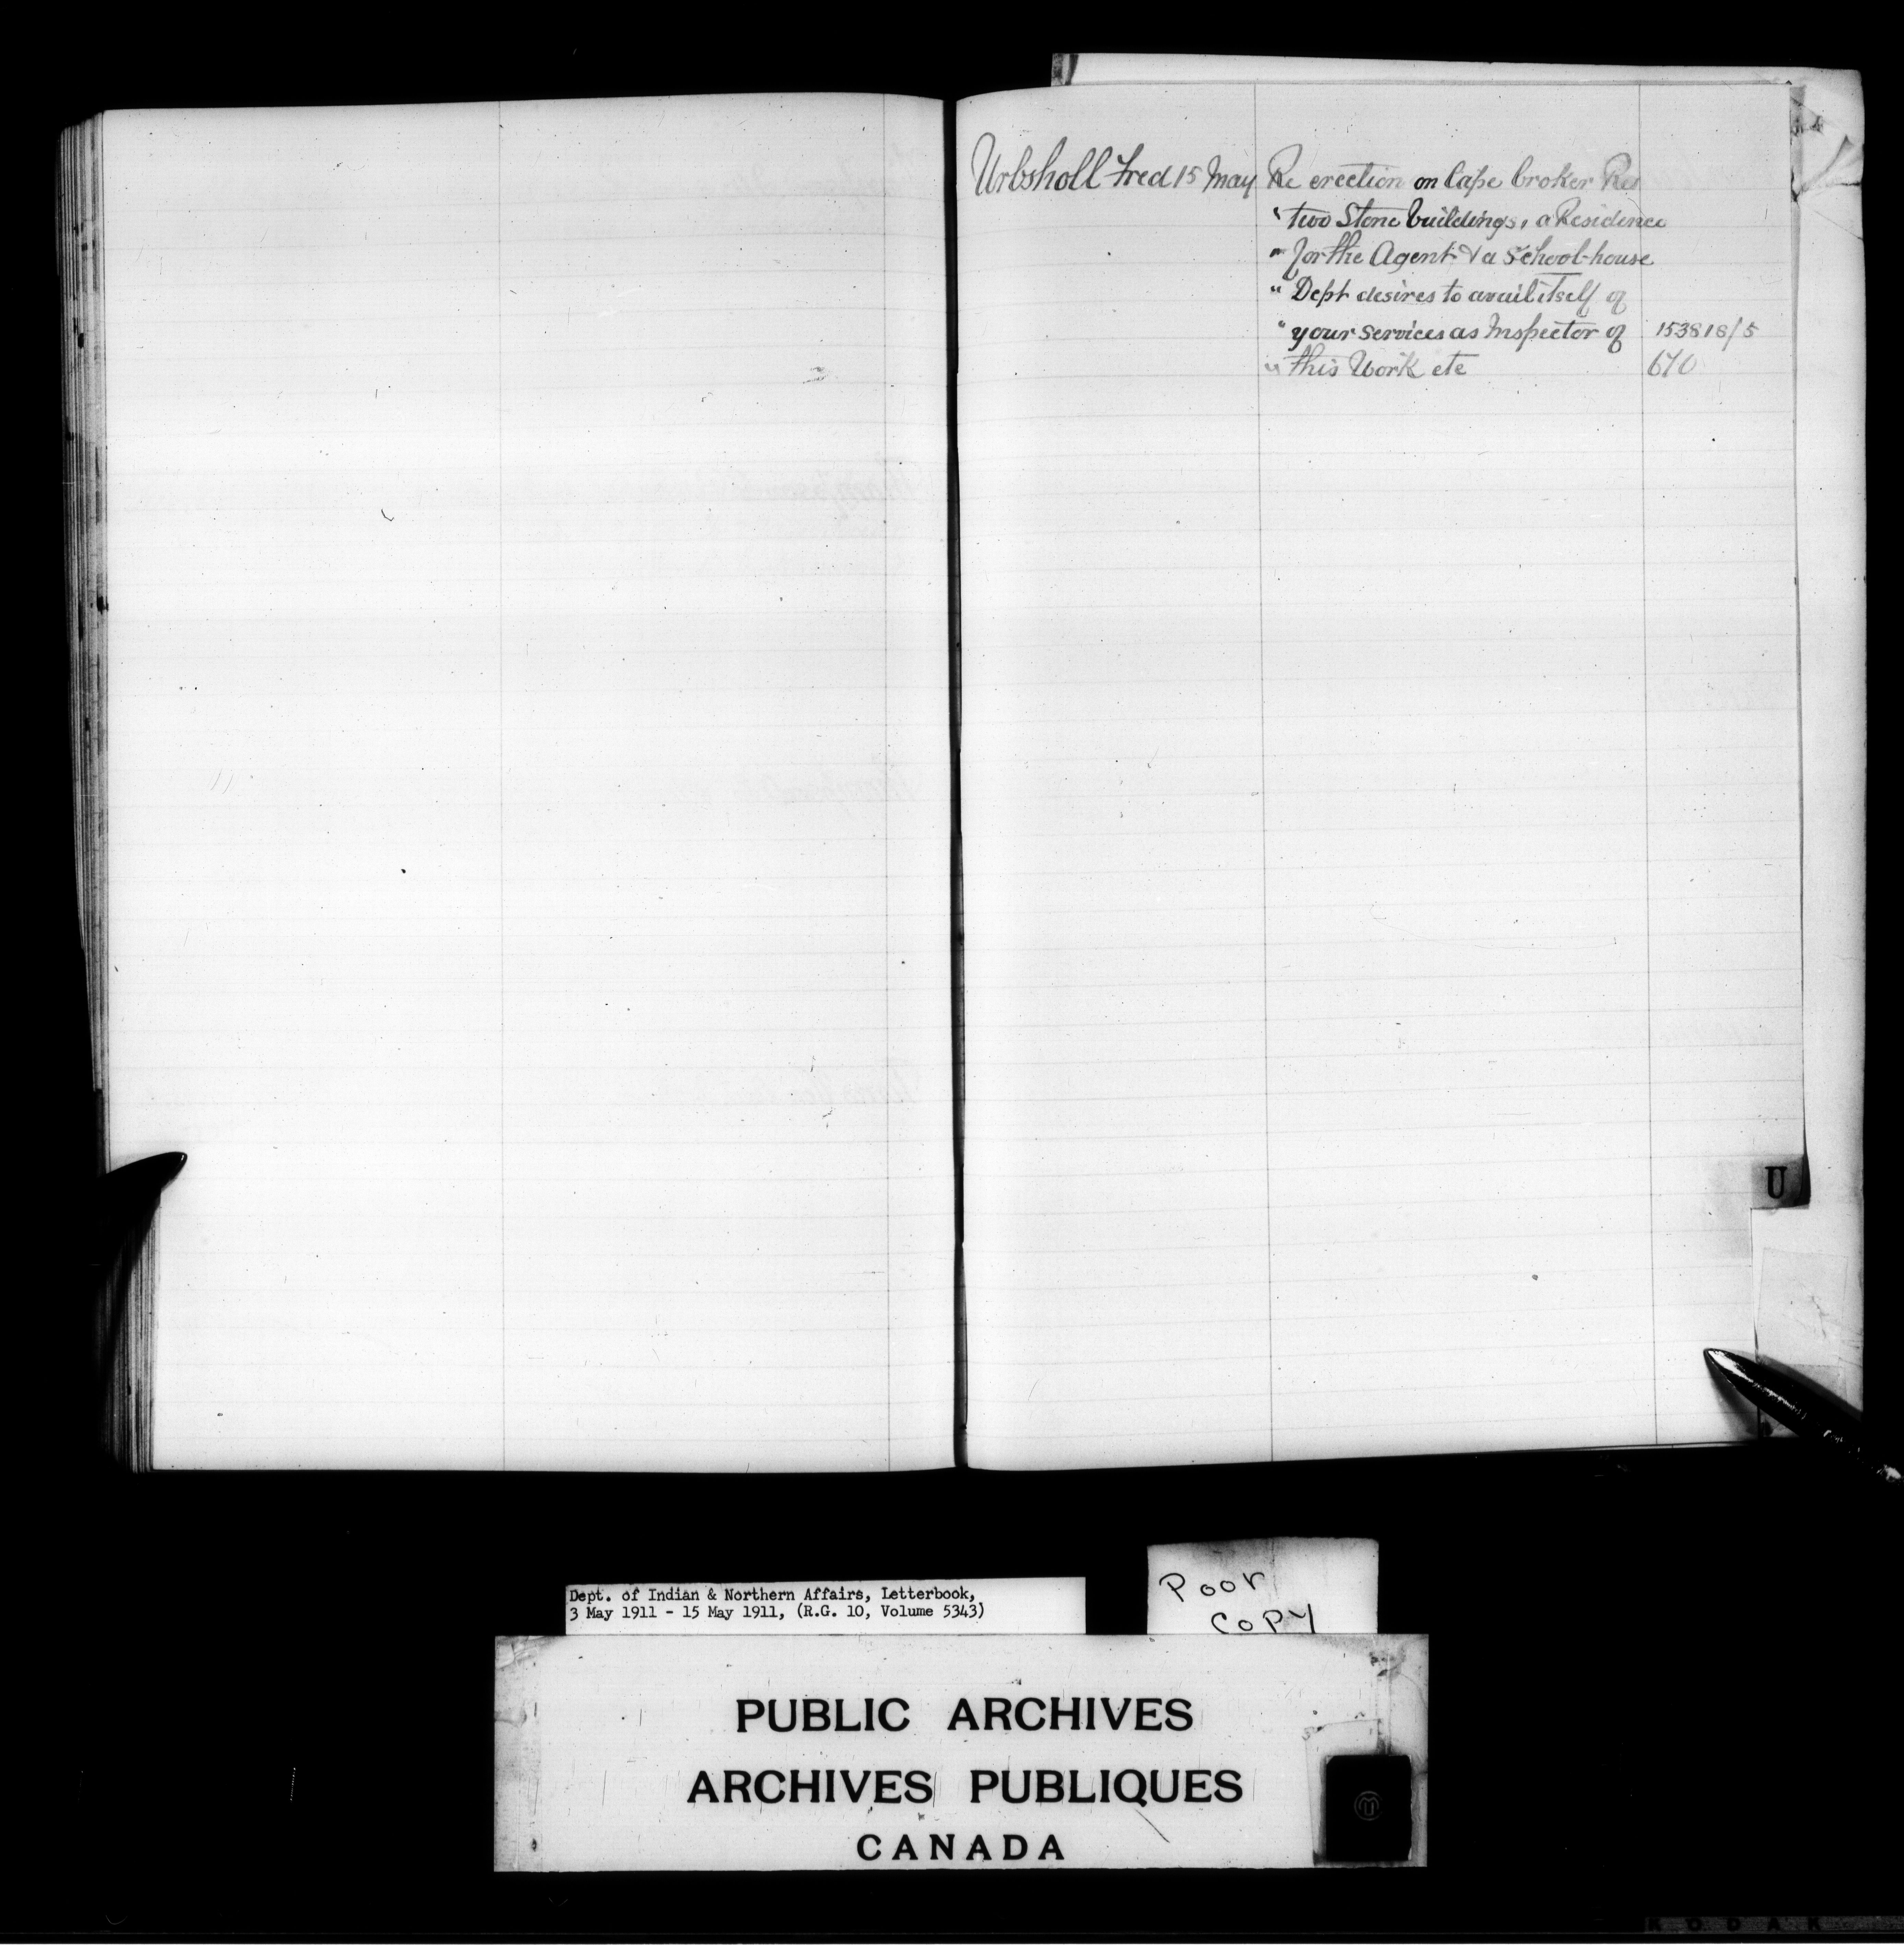 Urbsholl Fred 15 May Re erection on Cape Croker Res
" two Stone buildings, a Residence
" for the Agent & a School-house
" Dept desires to avail itself of
" your services as Inspector of 153818/5
" this Work etc 670
U
Dept. of Indian & Northern Affairs, Letterbook,
3 May 1911 - 15 May 1911, (R.G. 10, Volume 5343)
Poor
Copy
PUBLIC ARCHIVES
ARCHIVES PUBLIQUES
CANADA
KODAK